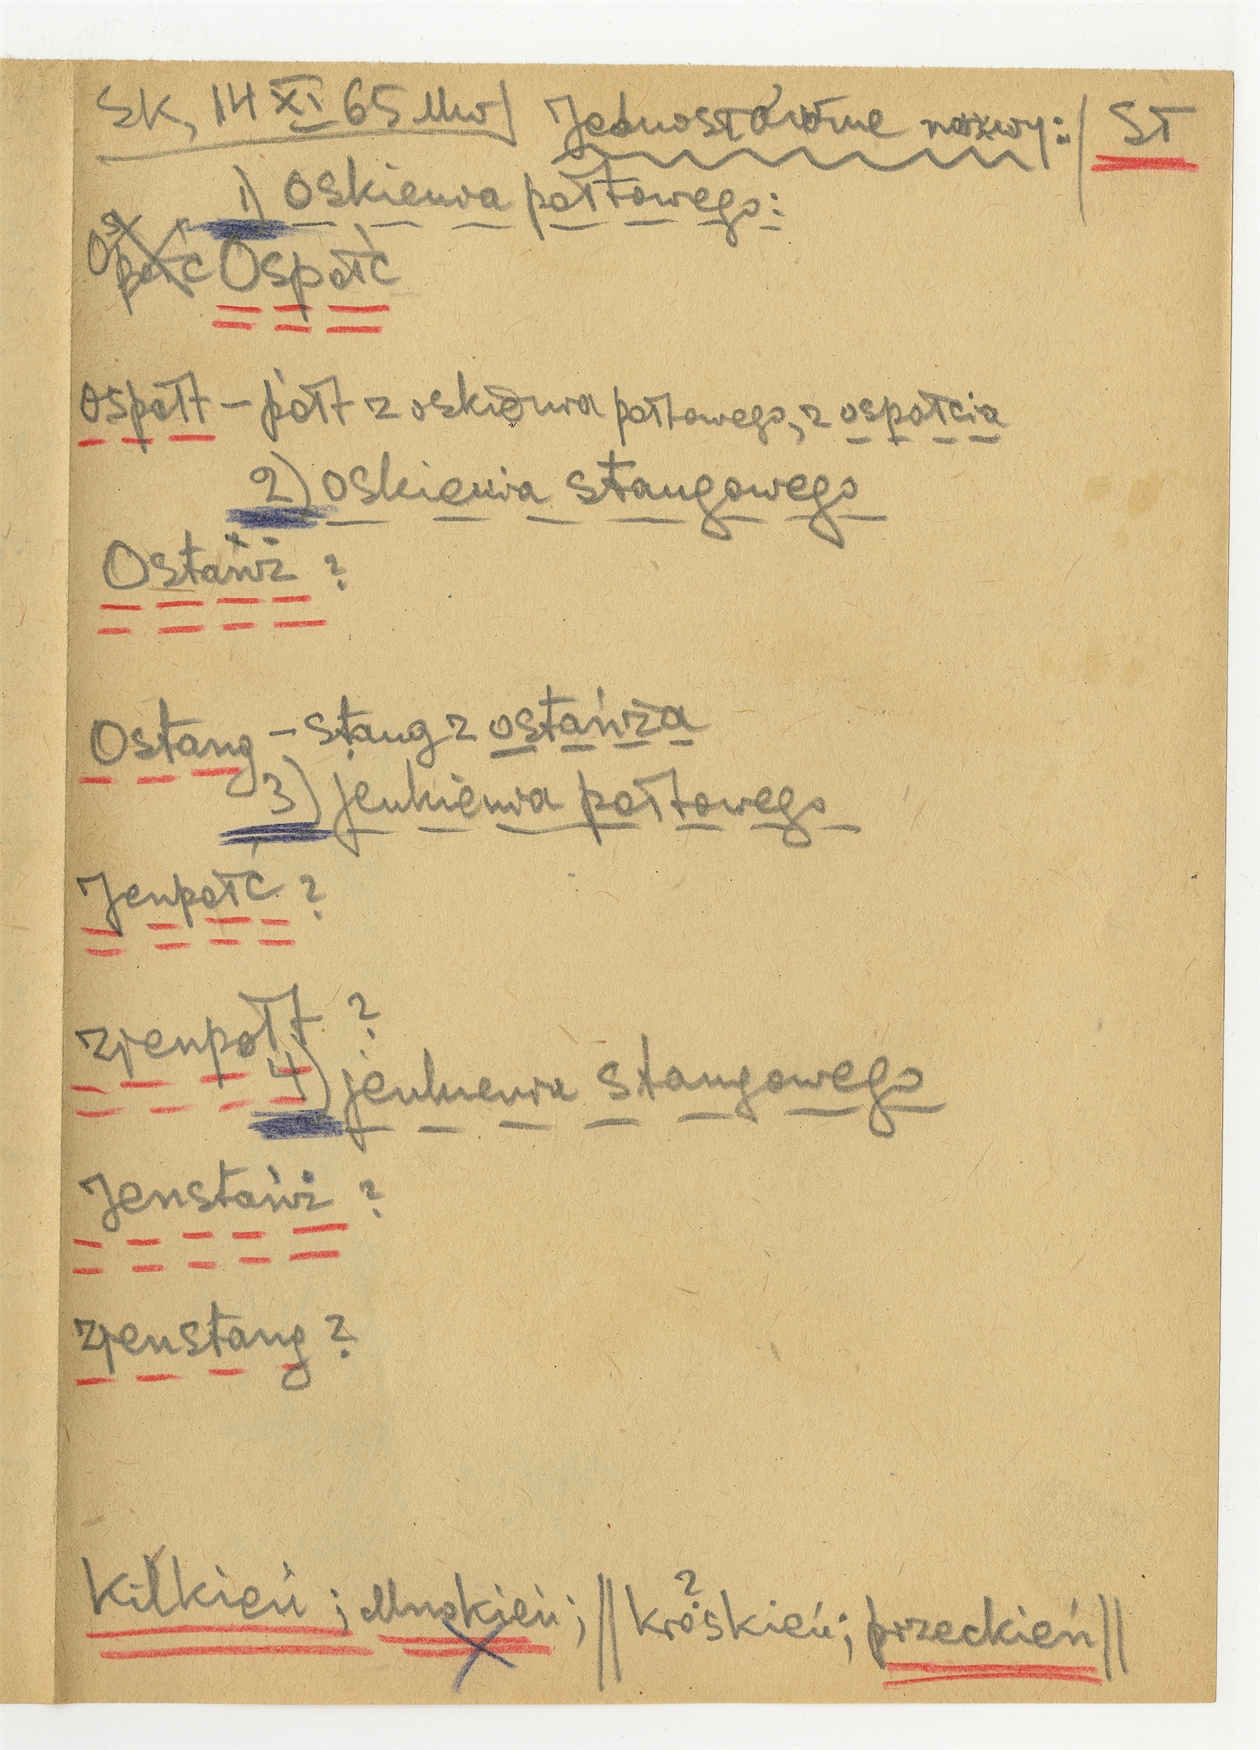 SK, 14 XI 65 Mw/ Jednosłówne nazwy:/ SŁ
1) oskienia połtowego:
Ospołć
ospołt – połt z oskienia połtowego, z ospołcia
2) oskienia stangowego
Ostańż ?
Ostang – stang z ostańża
3) jenkienia połtowego
Jenpołć ?
zjenpołt ?
4) jenkienia stangowego
Jenstańż ?
zjenstang ?
Kilkień ; Mnokień ; || króskień ? ; przeckień ||